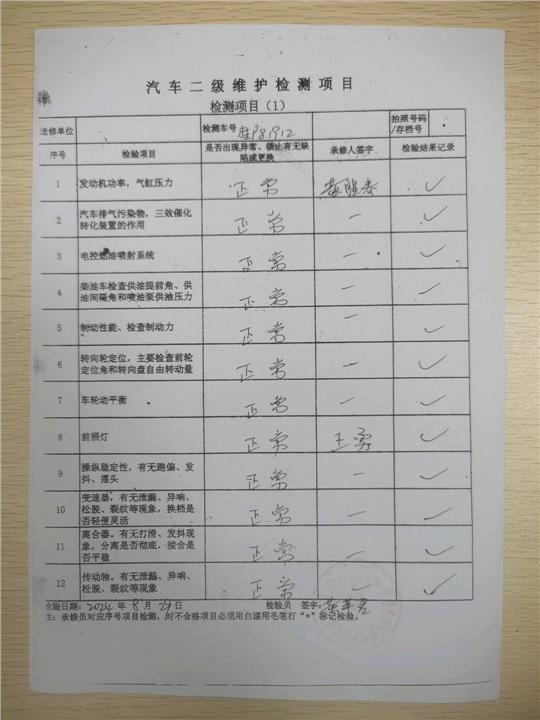 汽车二级维护检测项目
检测项目（1）
送修单位 检测车号 拍照号码/存档号
序号 检验项目 是否出现异常、 有无缺陷或更换 承修人签字 检验结果记录
1 发动机功率，气缸压力 正常 ✓
2 汽车排气污染物，三效催化转化装置的作用 正常 — ✓
3 电控燃油喷射系统 正常 — ✓
4 柴油车检查供油提前角、供油间隔角和喷油泵供油压力 正常 — ✓
5 制动性能、检查制动力 正常 — ✓
6 转向轮定位，主要检查前轮定位角和转向盘自由转动量 正常 — ✓
7 车轮动平衡 正常 — ✓
8 前照灯 正常 王勇 ✓
9 操纵稳定性，有无跑偏、发抖、摆头 正常 — ✓
10 变速器，有无泄漏、异响、松脱、裂纹等现象，换档是否轻便灵活 正常 — ✓
11 离合器。有无打滑、发抖现象，分离是否彻底，接合是否平稳 正常 — ✓
12 传动轴。有无泄漏、异响、松脱、裂纹等现象 正常 — ✓
检验日期：2024 年 8 月 29日 检验员 签字：
主：承修员对应序号项目检测，对不合格项目必须用白漆用毛笔打“×”标记检验。